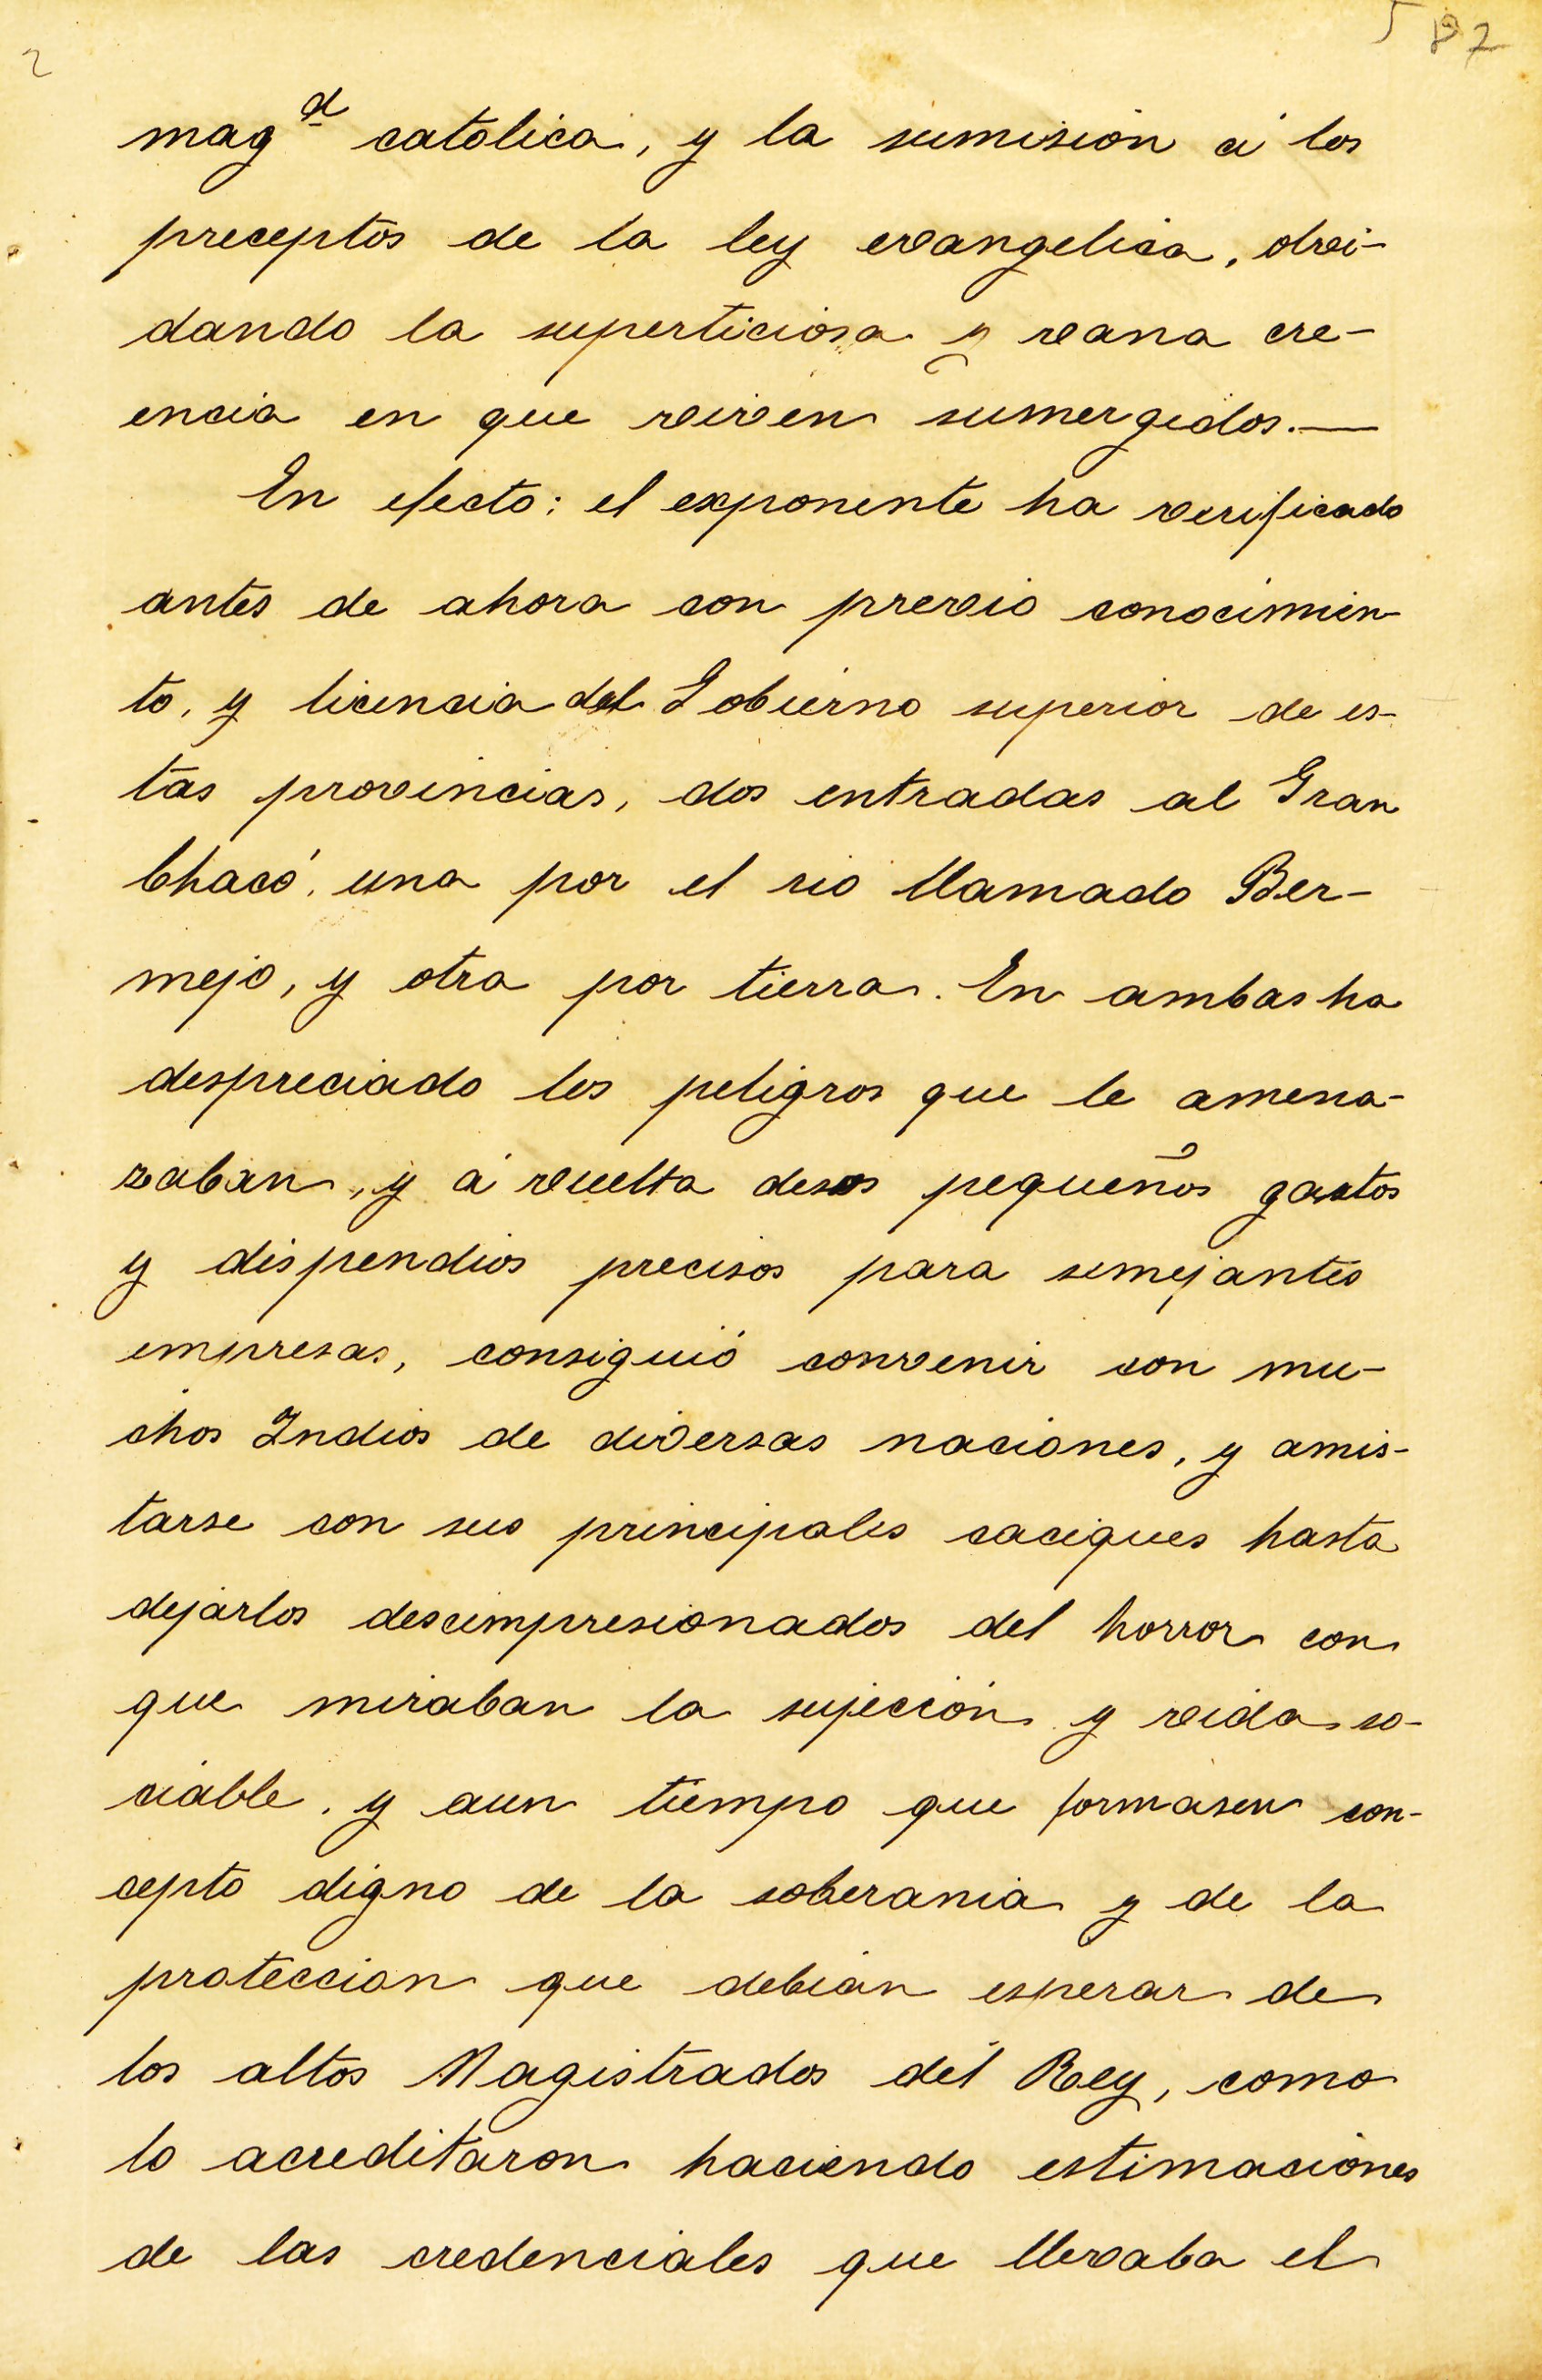 2
5 87
magᵈ catolica, y la sumision á los
preceptos de la ley evangelica, olvi-
dando la superticiosa y vana cre-
encia en que viven sumergidos.—
En efecto: el exponente ha verificado
antes de ahora con previo conocimien
to, y licencia del Gobierno superior de es-
tas provincias, dos entradas al Gran
Chacó, una por el rio llamado Ber-
mejo, y otra por tierra. En ambas ha
despreciado los peligros que le amena-
zaban, y á vuelta de pequeños gastos
y dispendios precisos para semejantes
empresas, consiguió convenir con mu-
chos Indios de diversas naciones, y amis-
tarse con sus principales caciques hasta
dejarlos desimpresionados del horror con
que miraban la sujeción y vida so-
ciable, y aun tiempo que formasen con-
cepto digno de la soberania y de la
proteccion que debian esperar de
los altos Magistrados del Rey, como
lo acreditaron haciendo estimaciones
de las credenciales que llevaba el